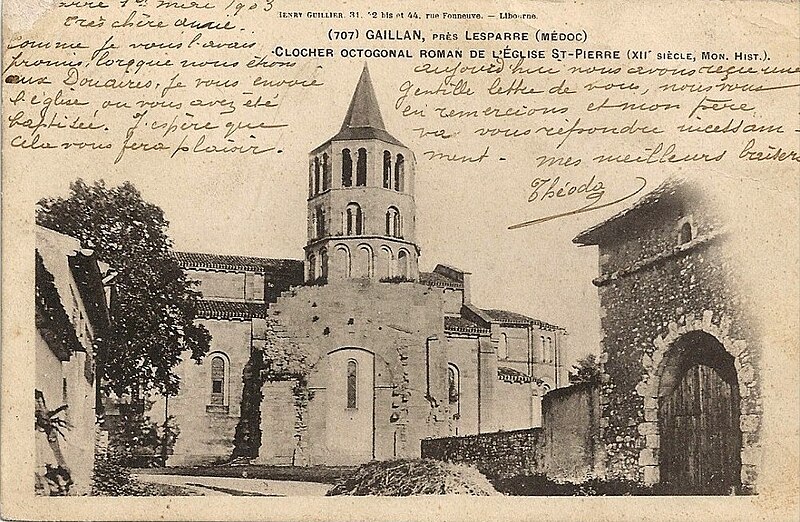 HENRY GUILLIER, 31, 42 bis et 44, rue Fonneuve. — Libourne.
(707) GAILLAN, PRÈS LESPARRE (MÉDOC)
CLOCHER OCTOGONAL ROMAN DE L'ÉGLISE ST-PIERRE (XIIᵉ SIÈCLE, MON. HIST.).
1903
très chère amie.
comme je vous l'avais
promis, lorsque nous étions
aux Douaires, je vous envoie
l'église ou vous avez été
baptisée. J'espère que
cela vous fera plaisir.
aujourd'hui nous avons reçu une
gentille lettre de vous, nous vous
en remercions et mon frère
va vous répondre incessam-
ment - mes meilleurs baisers
Théoda